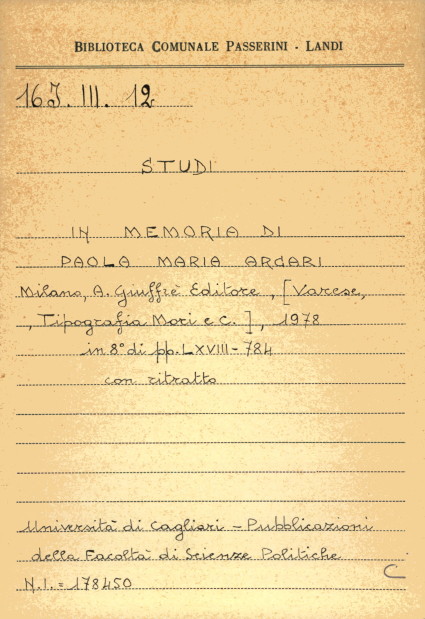 BIBLIOTECA COMUNALE PASSERINI - LANDI
16J. III. 12
STUDI
IN MEMORIA DI
PAOLA MARIA ARCARI
Milano, A. Giuffrè Editore, [Varese,
, Tipografia Mori e C.], 1978
in 8° di pp. LXVIII-784
con ritratto
Università di Cagliari - Pubblicazioni
della Facoltà di Scienze Politiche
C
N.I. = 178450